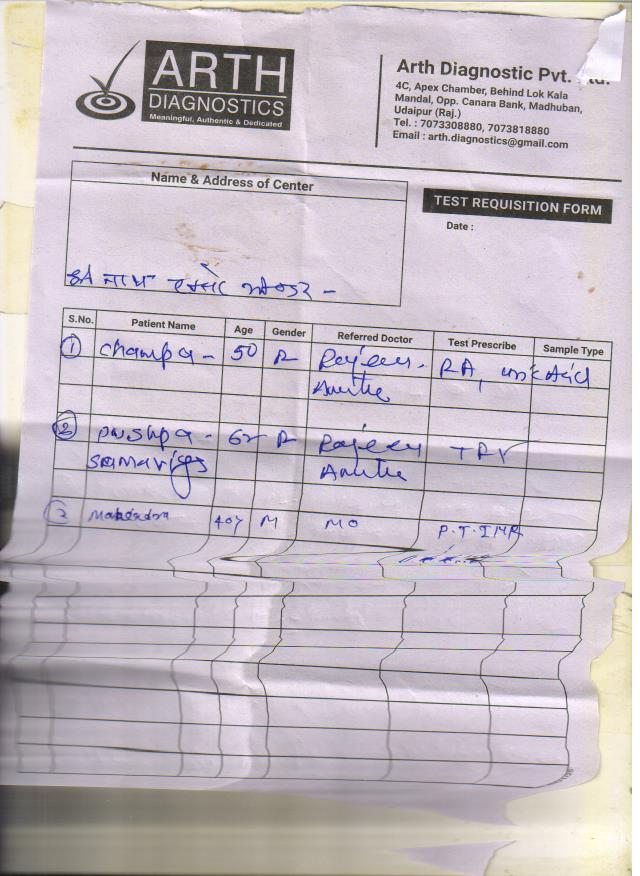 ARTH
DIAGNOSTICS
Meaningful, Authentic & Dedicated
Arth Diagnostic Pvt. Ltd.
4C, Apex Chamber, Behind Lok Kala
Mandal, Opp. Canara Bank, Madhuban,
Udaipur (Raj.)
Tel. : 7073308880, 7073818880
Email : arth.diagnostics@gmail.com
Name & Address of Center
TEST REQUISITION FORM
Date :
S.No. Patient Name Age Gender Referred Doctor Test Prescribe Sample Type
1 champa - 50 Rajeev - RA, uric Acid
2 pushpa - 62 Rajeev
Mahendra 40y M MO P.T.INR